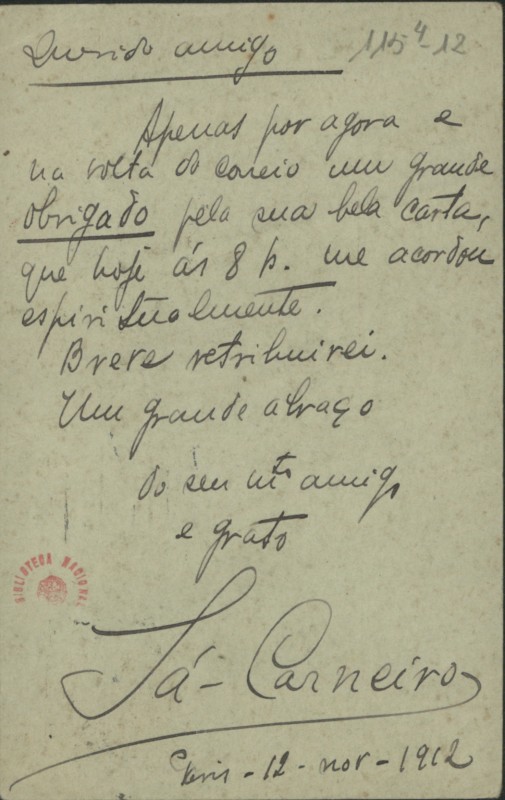 115⁴-12
Querido amigo
Apenas por agora e
na volta do correio um grande
obrigado pela sua bela carta,
que hoje ás 8 h. me acordou
espiritualmente.
Breve retribuirei.
Um grande abraço
do seu mto amigo
e grato
BIBLIOTECA NACIONAL
Sá-Carneiro
Paris - 12 - nov - 1912